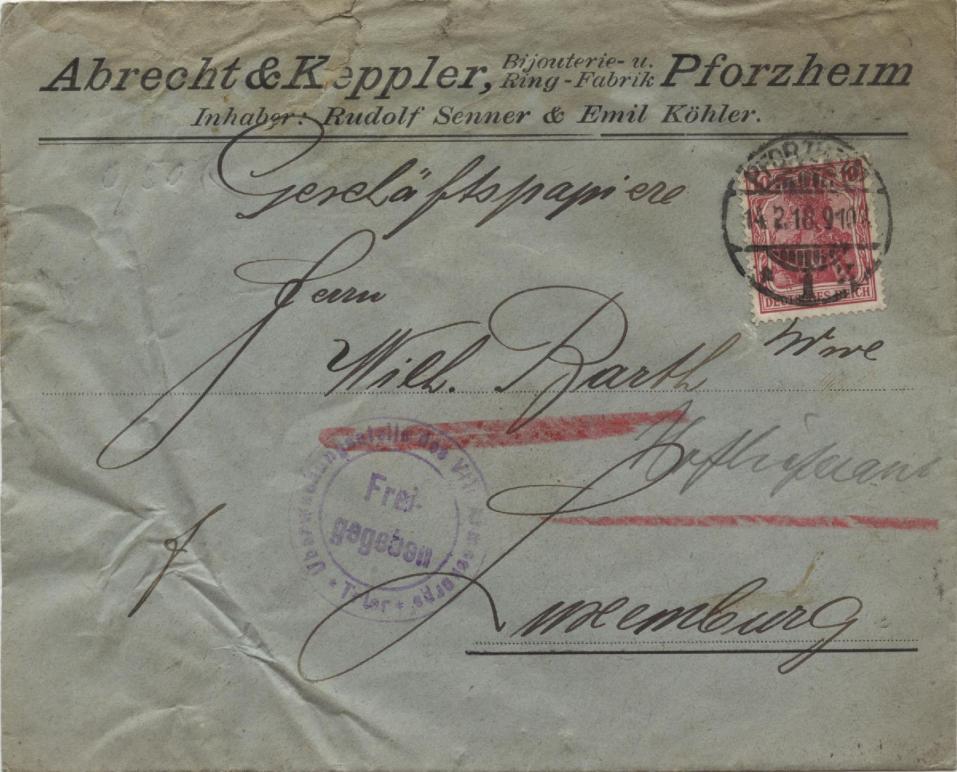 Abrecht & Keppler, Bijouterie- u. Ring-Fabrik Pforzheim
Inhaber: Rudolf Senner & Emil Köhler.
Geschäftspapiere
PFORZHEIM
14.2.18.9-10V.
* 1
10
DEUTSCHES REICH
Herrn
Wilh. Barth Wwe
Überwachungsstelle des VIII. Armeekorps
* Trier *
Frei-
gegeben
Luxemburg